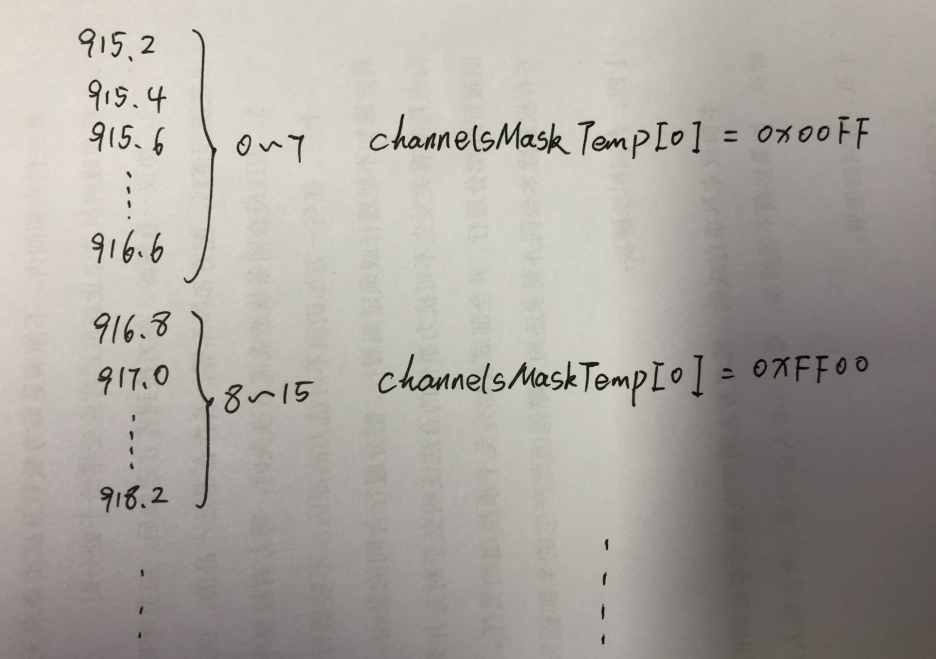 915.2
915.4
915.6
916.6
0~7 channelsMaskTemp[0] = 0x00FF
916.8
917.0
918.2
8~15 channelsMaskTemp[0] = 0XFF00